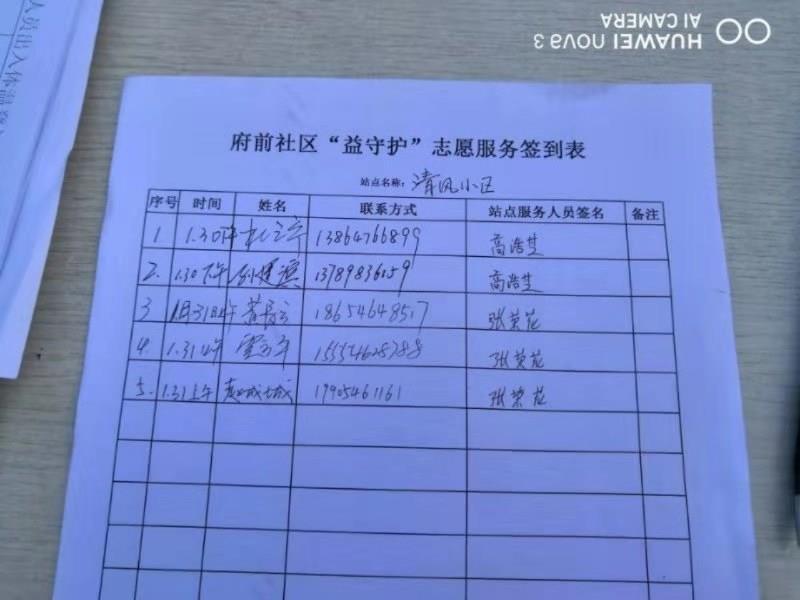 HUAWEI nova 3
AI CAMERA
人员出入体温登
府前社区“益守护”志愿服务签到表
站点名称：清风小区
序号 时间 姓名 联系方式 站点服务人员签名 备注
1 1.30下午 13864766899
2. 1.30下午 13789836059 
3 1月31日上午 18654648517 张荣花
4. 1.31上午 15554628788 张荣花
5. 1.31上午 19905461161 张荣花